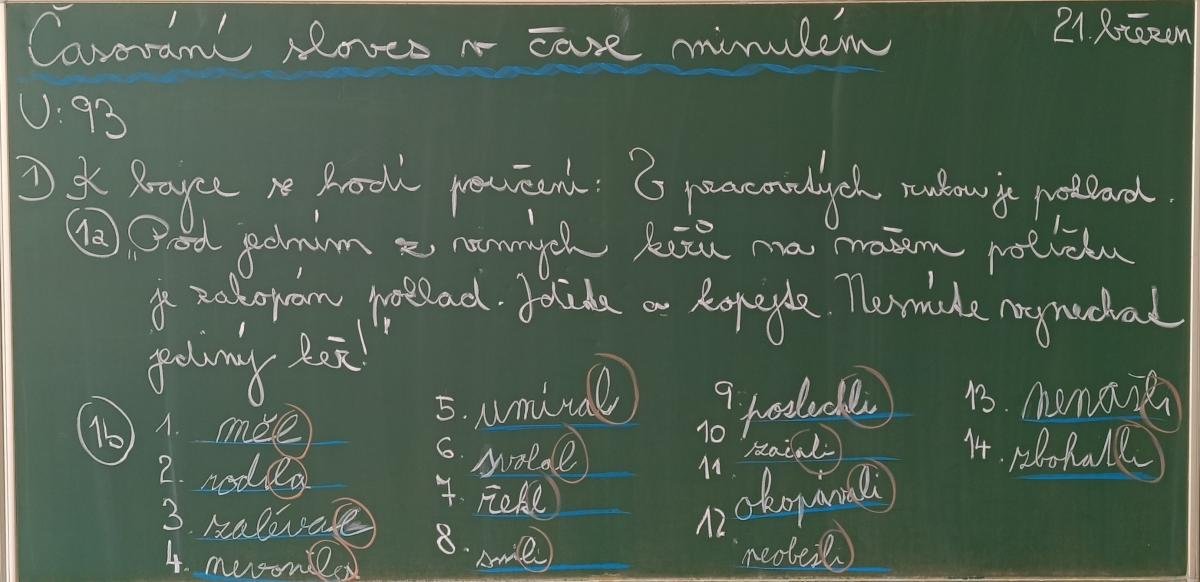 Časování sloves v čase minulém
21. březen
U: 93
1) K bajce se hodí poučení: Z pracovitých rukou je poklad.
1a „Pod jedním z vinných keřů na našem políčku
je zakopán poklad. Jděte a kopejte. Nesmíte vynechat
jediný keř!"
1b 1. měl
2. rodila
3 zaléval
4.
5. umíral
6. svolal
7. řekl
8. směli
9. poslechli
10 začali
11 okopávali
12 neobešli
13. nenašli
14. zbohatli